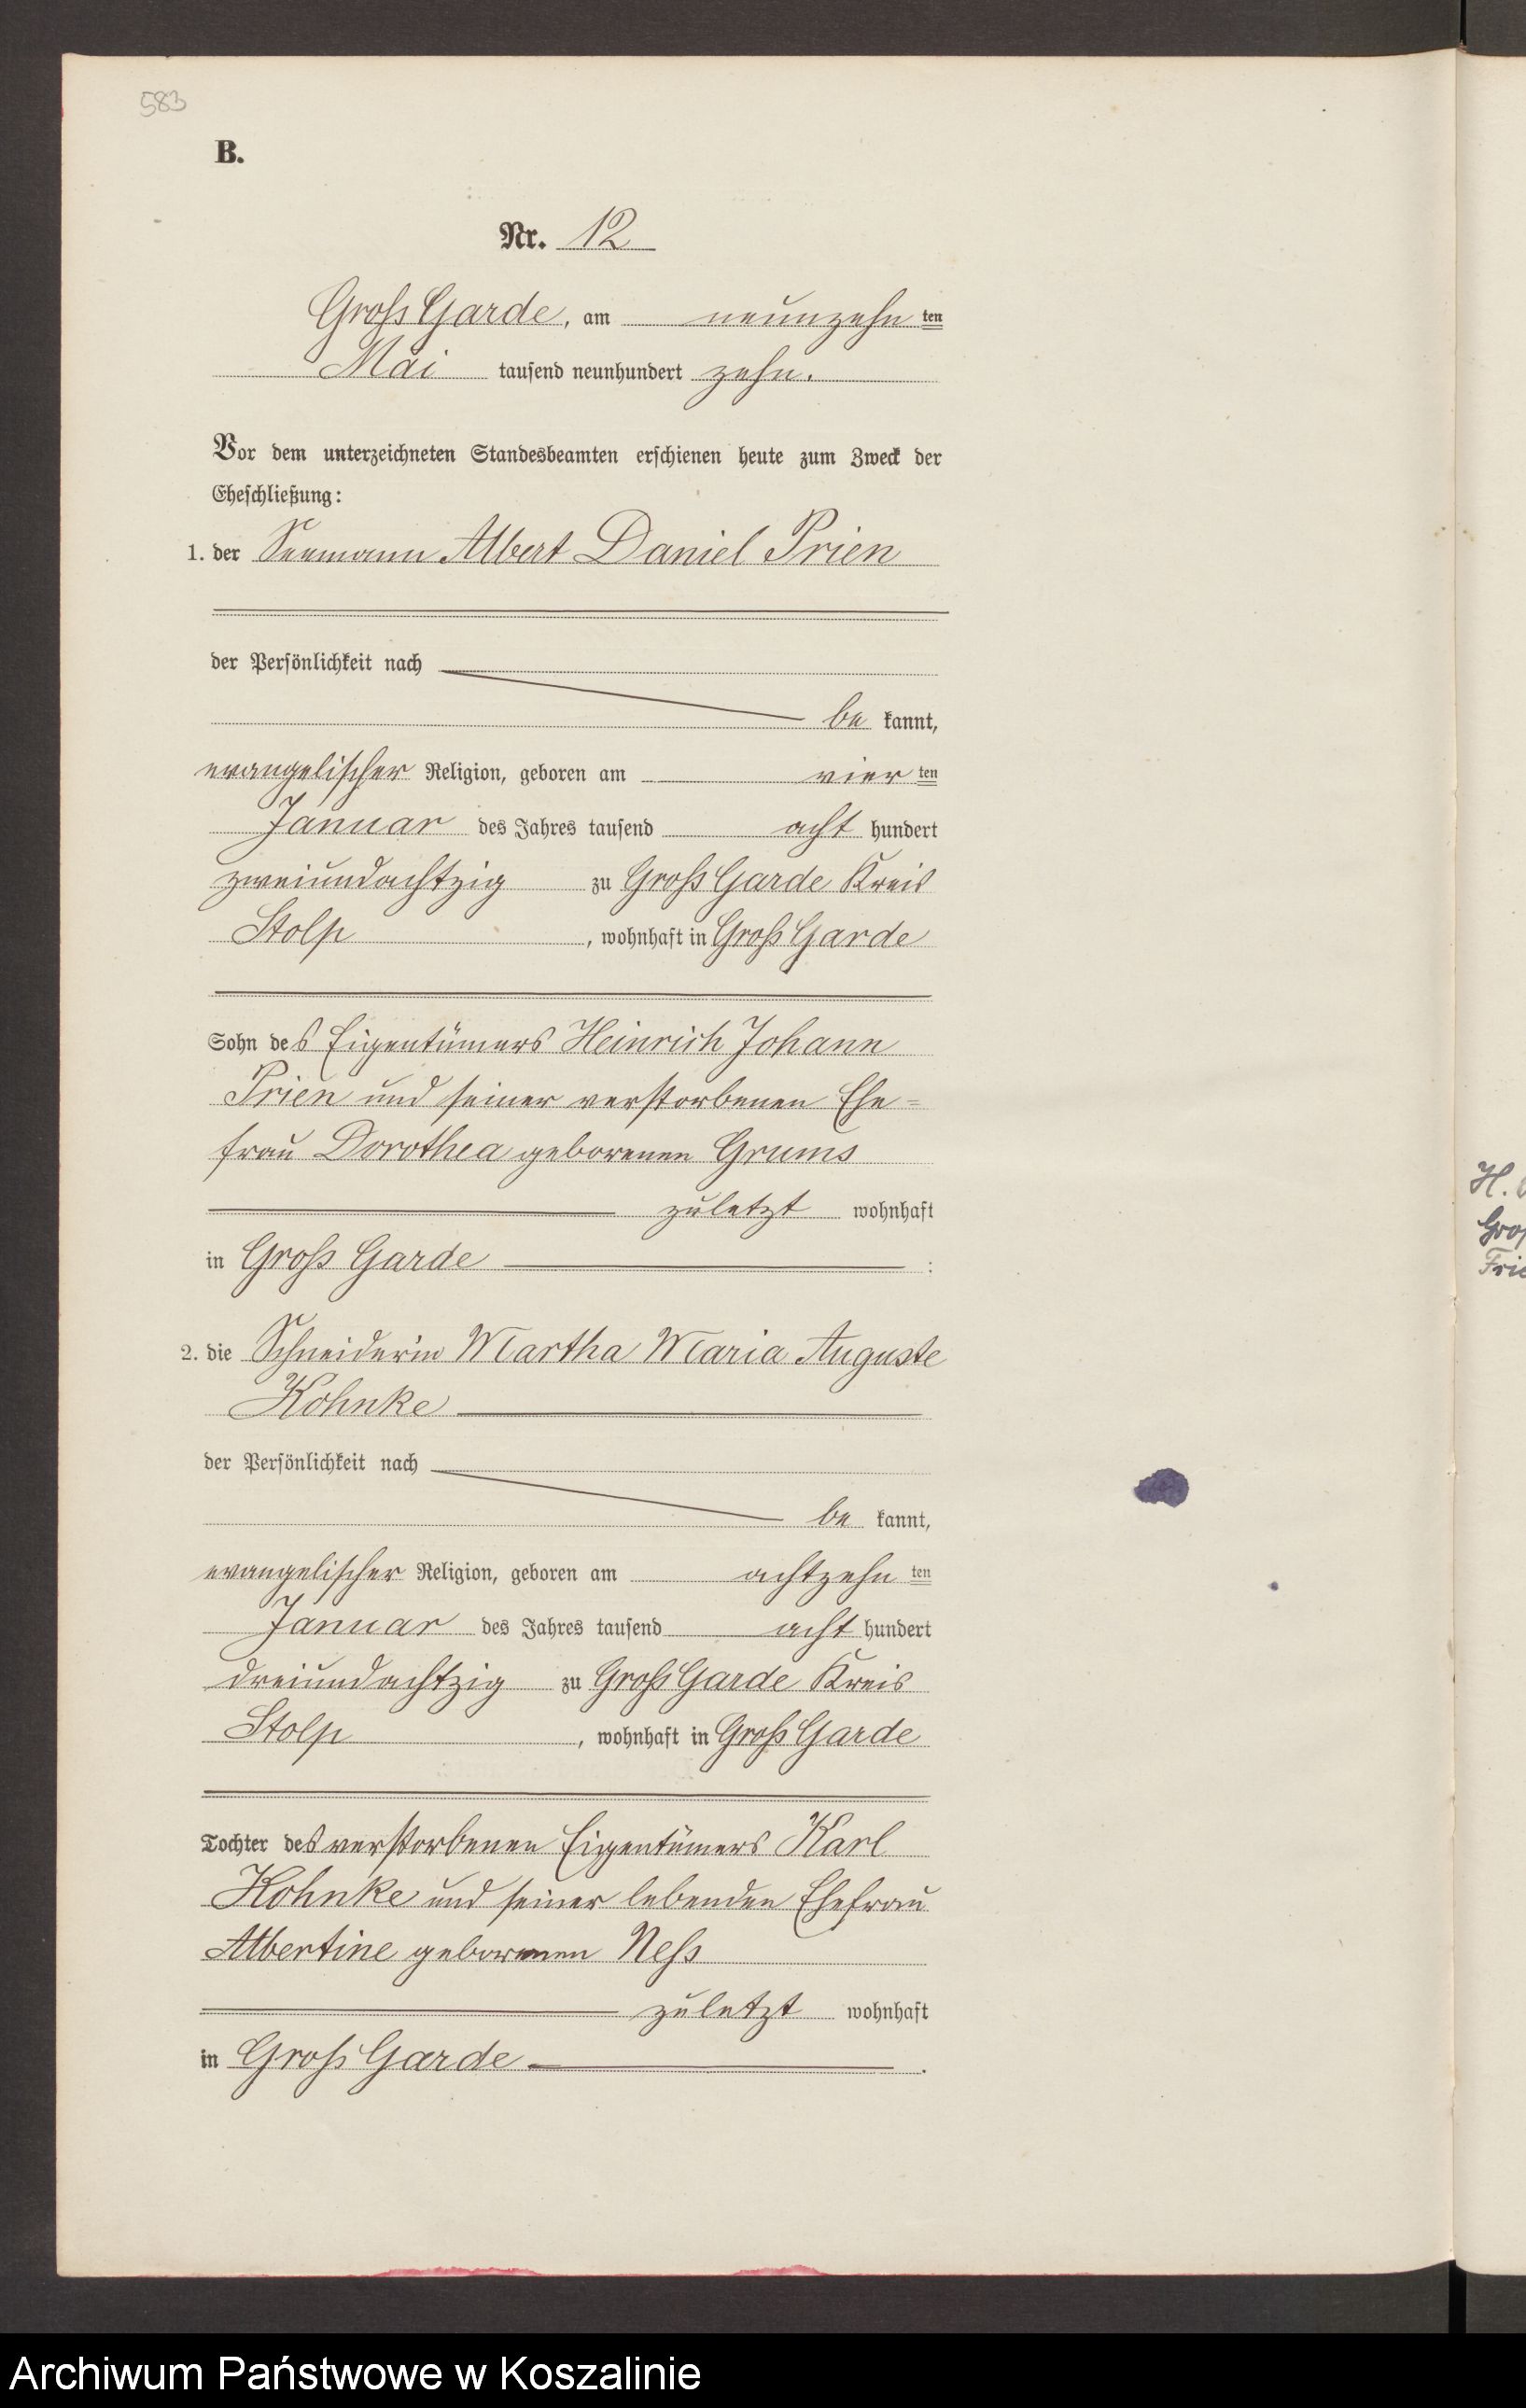 583
B.
Nr. 12
Groß Garde, am neunzehn ten
Mai tausend neunhundert zehn.
Vor dem unterzeichneten Standesbeamten erschienen heute zum Zweck der
Eheschließung:
1. der Seemann Albert Daniel Prien
der Persönlichkeit nach
be kannt,
evangelischer Religion, geboren am vier ten
Januar des Jahres tausend acht hundert
zweiundachtzig zu Groß Garde Kreis
Stolp, wohnhaft in Groß Garde
Sohn des Eigentümers Heinrich Johann
Prien und seiner verstorbenen Ehe=
frau Dorothea geborenen Grums
zuletzt wohnhaft
in Groß Garde :
2. die Schneiderin Martha Maria Auguste
Kohnke
der Persönlichkeit nach
be kannt,
evangelischer Religion, geboren am achtzehn ten
Januar des Jahres tausend acht hundert
dreiundachtzig zu Groß Garde Kreis
Stolp, wohnhaft in Groß Garde
Tochter des verstorbenen Eigentümers Karl
Kohnke und seiner lebenden Ehefrau
Albertine geborenen Neß
zuletzt wohnhaft
in Groß Garde .
H.
Archiwum Państwowe w Koszalinie